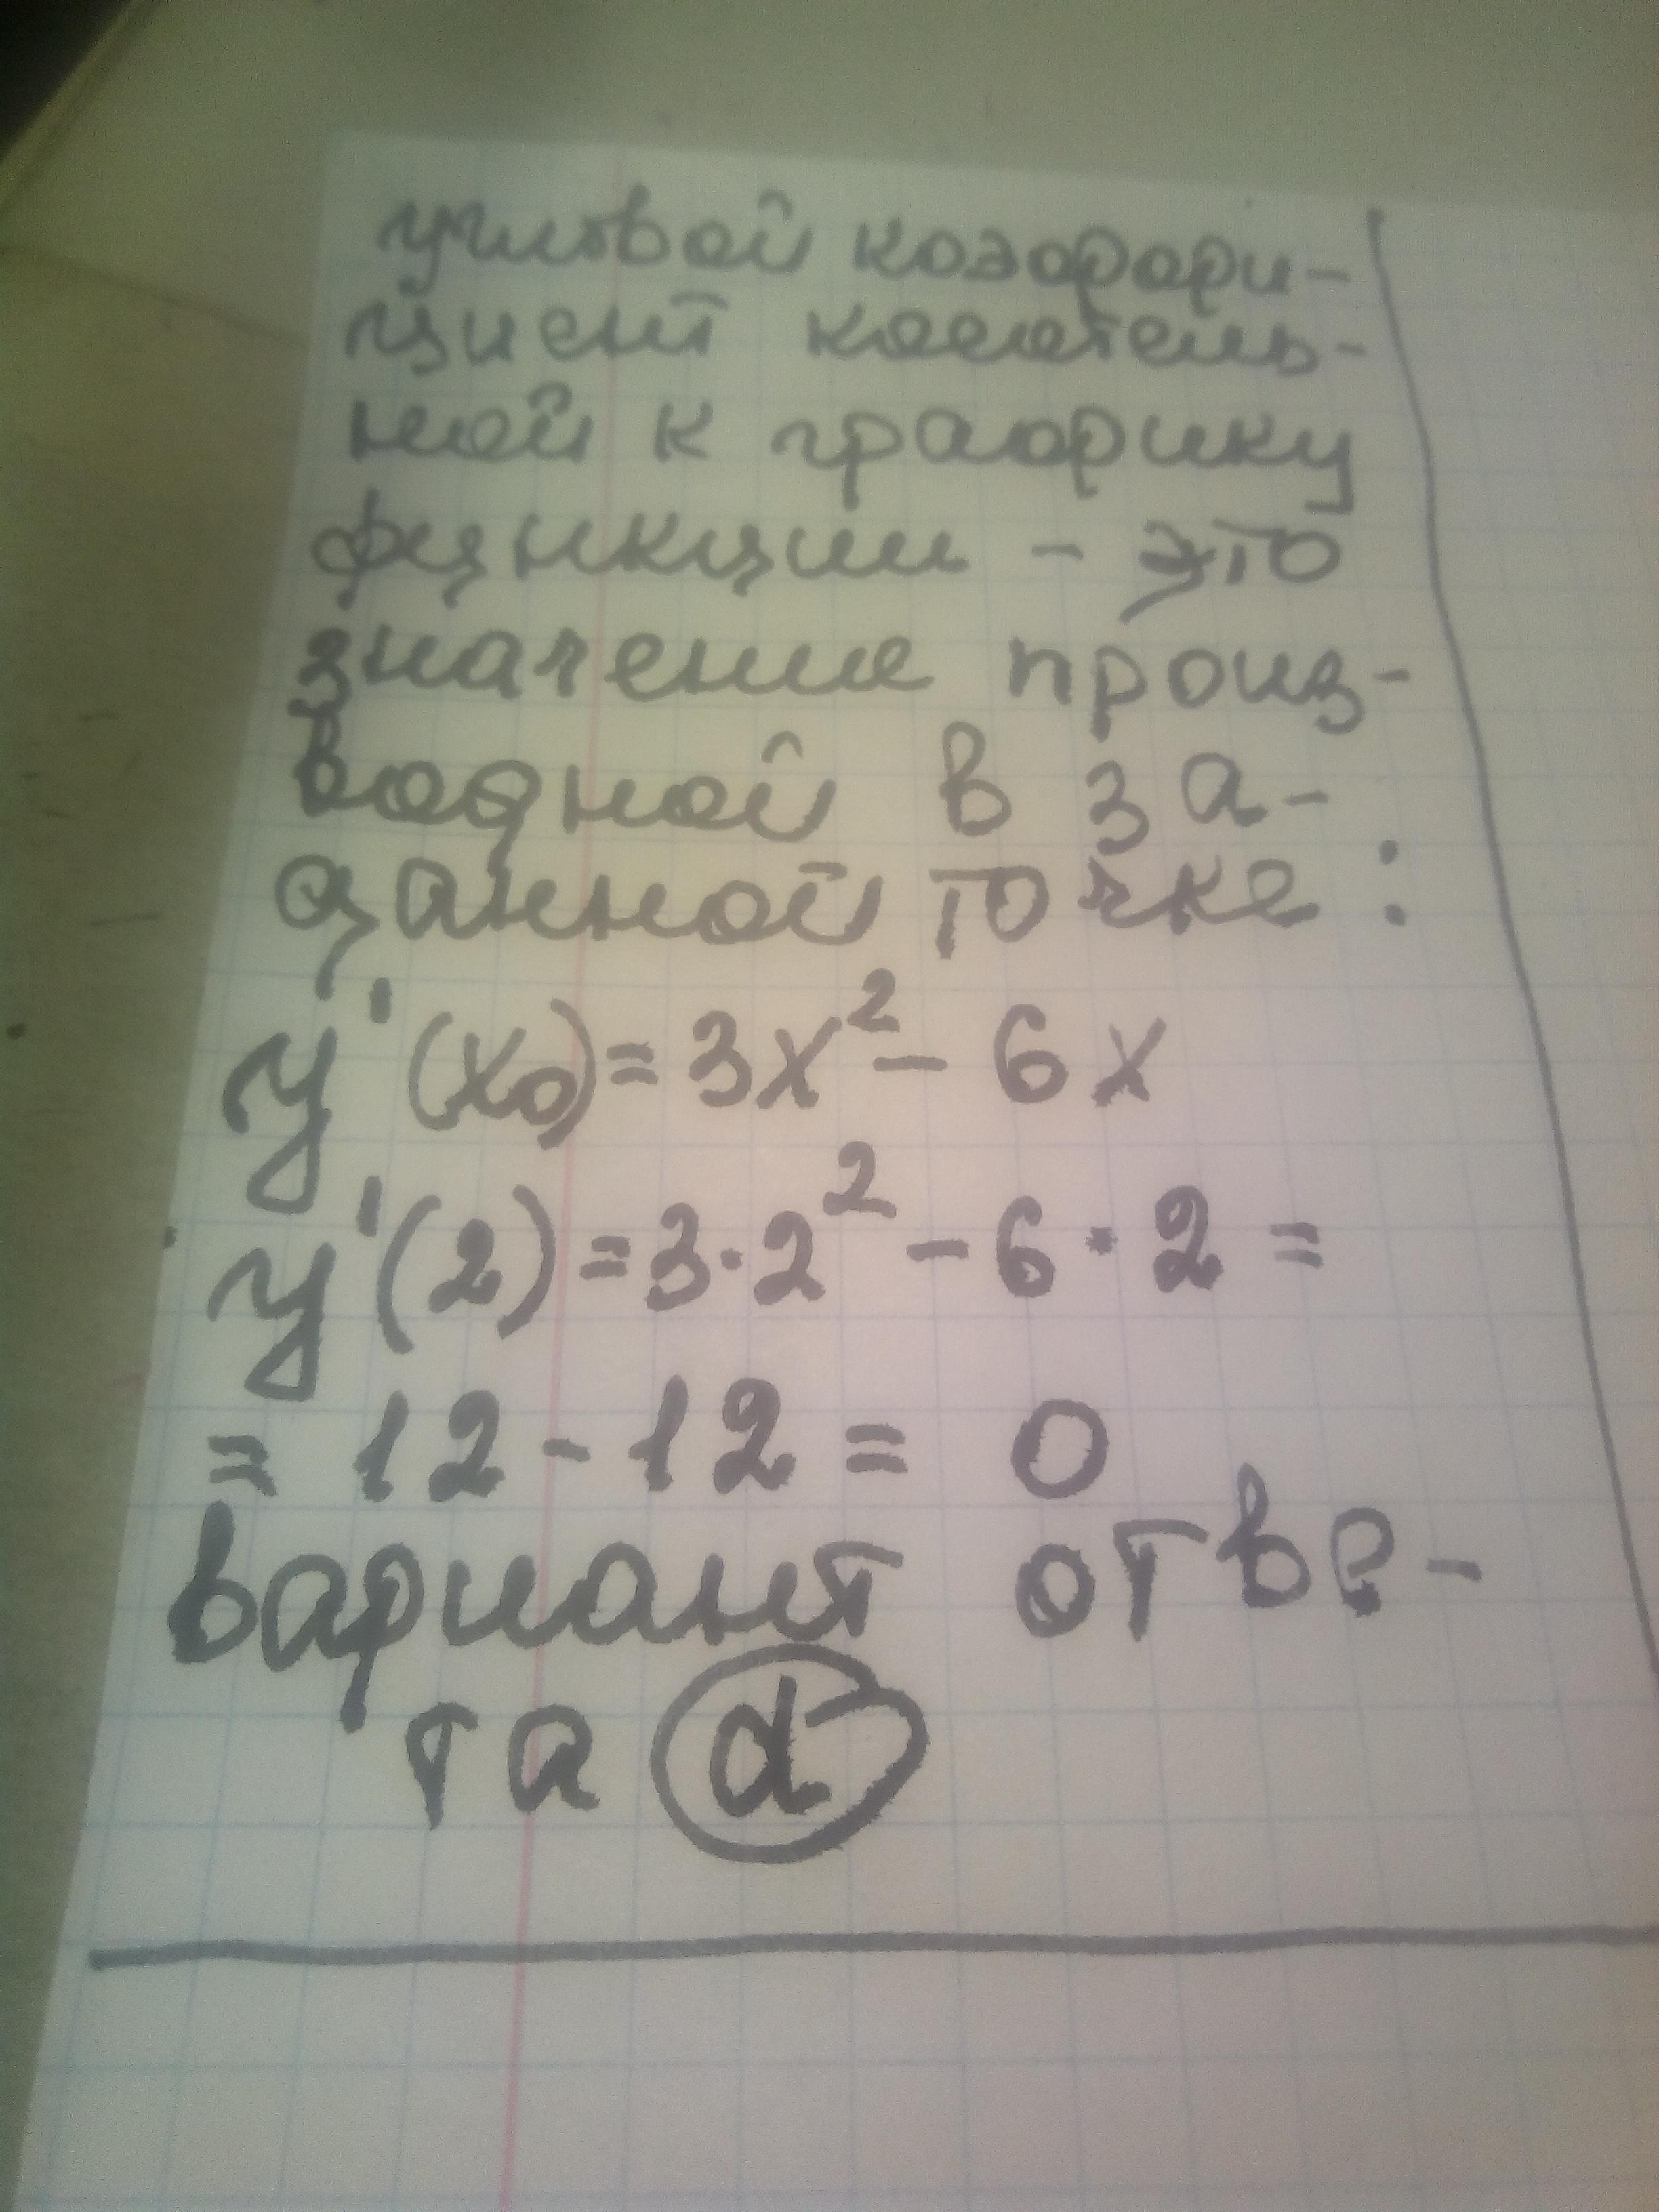 угловой коэффри-
циент касатель-
ной к графику
функции - это
значение произ-
водной в за-
данной точке :
y'(x₀)=3x²- 6x
y'(2)=3·2² -6·2 =
= 12-12= 0
вариант отве-
та d